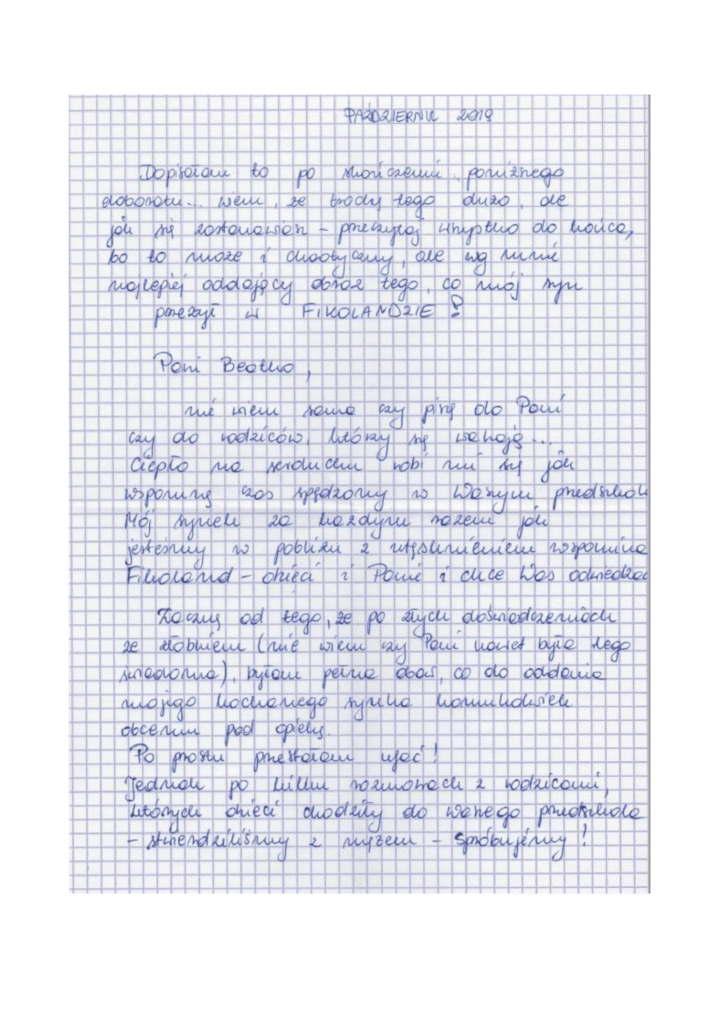 PAŹDZIERNIK 2019
Dopisałam to po skończeniu poniższego
elaboratu... wiem, że trochę tego dużo, ale
jak się zastanawiasz - przeczytaj wszystko do końca,
bo to może i chaotyczny, ale wg mnie
najlepiej oddający obraz tego, co mój syn
przeżył w FIKOLANDZIE!
Pani Beatko,
nie wiem sama czy piszę do Pani
czy do rodziców, którzy się wahają...
Ciepło na serduchu robi mi się jak
wspomnę czas spędzony w Waszym przedszkolu
Mój synek za każdym razem jak
jesteśmy w pobliżu z utęsknieniem wspomina
Fikoland - dzieci i Panie i chce Was odwiedzać
Zacznę od tego, że po złych doświadczeniach
ze żłobkiem (nie wiem czy Pani nawet była tego
świadoma), byłam pełna obaw, co do oddania
mojego kochanego synka komukolwiek
obcemu pod opiekę.
Po prostu przestałam ufać!
Jednak po kilku rozmowach z rodzicami,
których dzieci chodziły do waszego przedszkola
- stwierdziliśmy z mężem - spróbujemy!